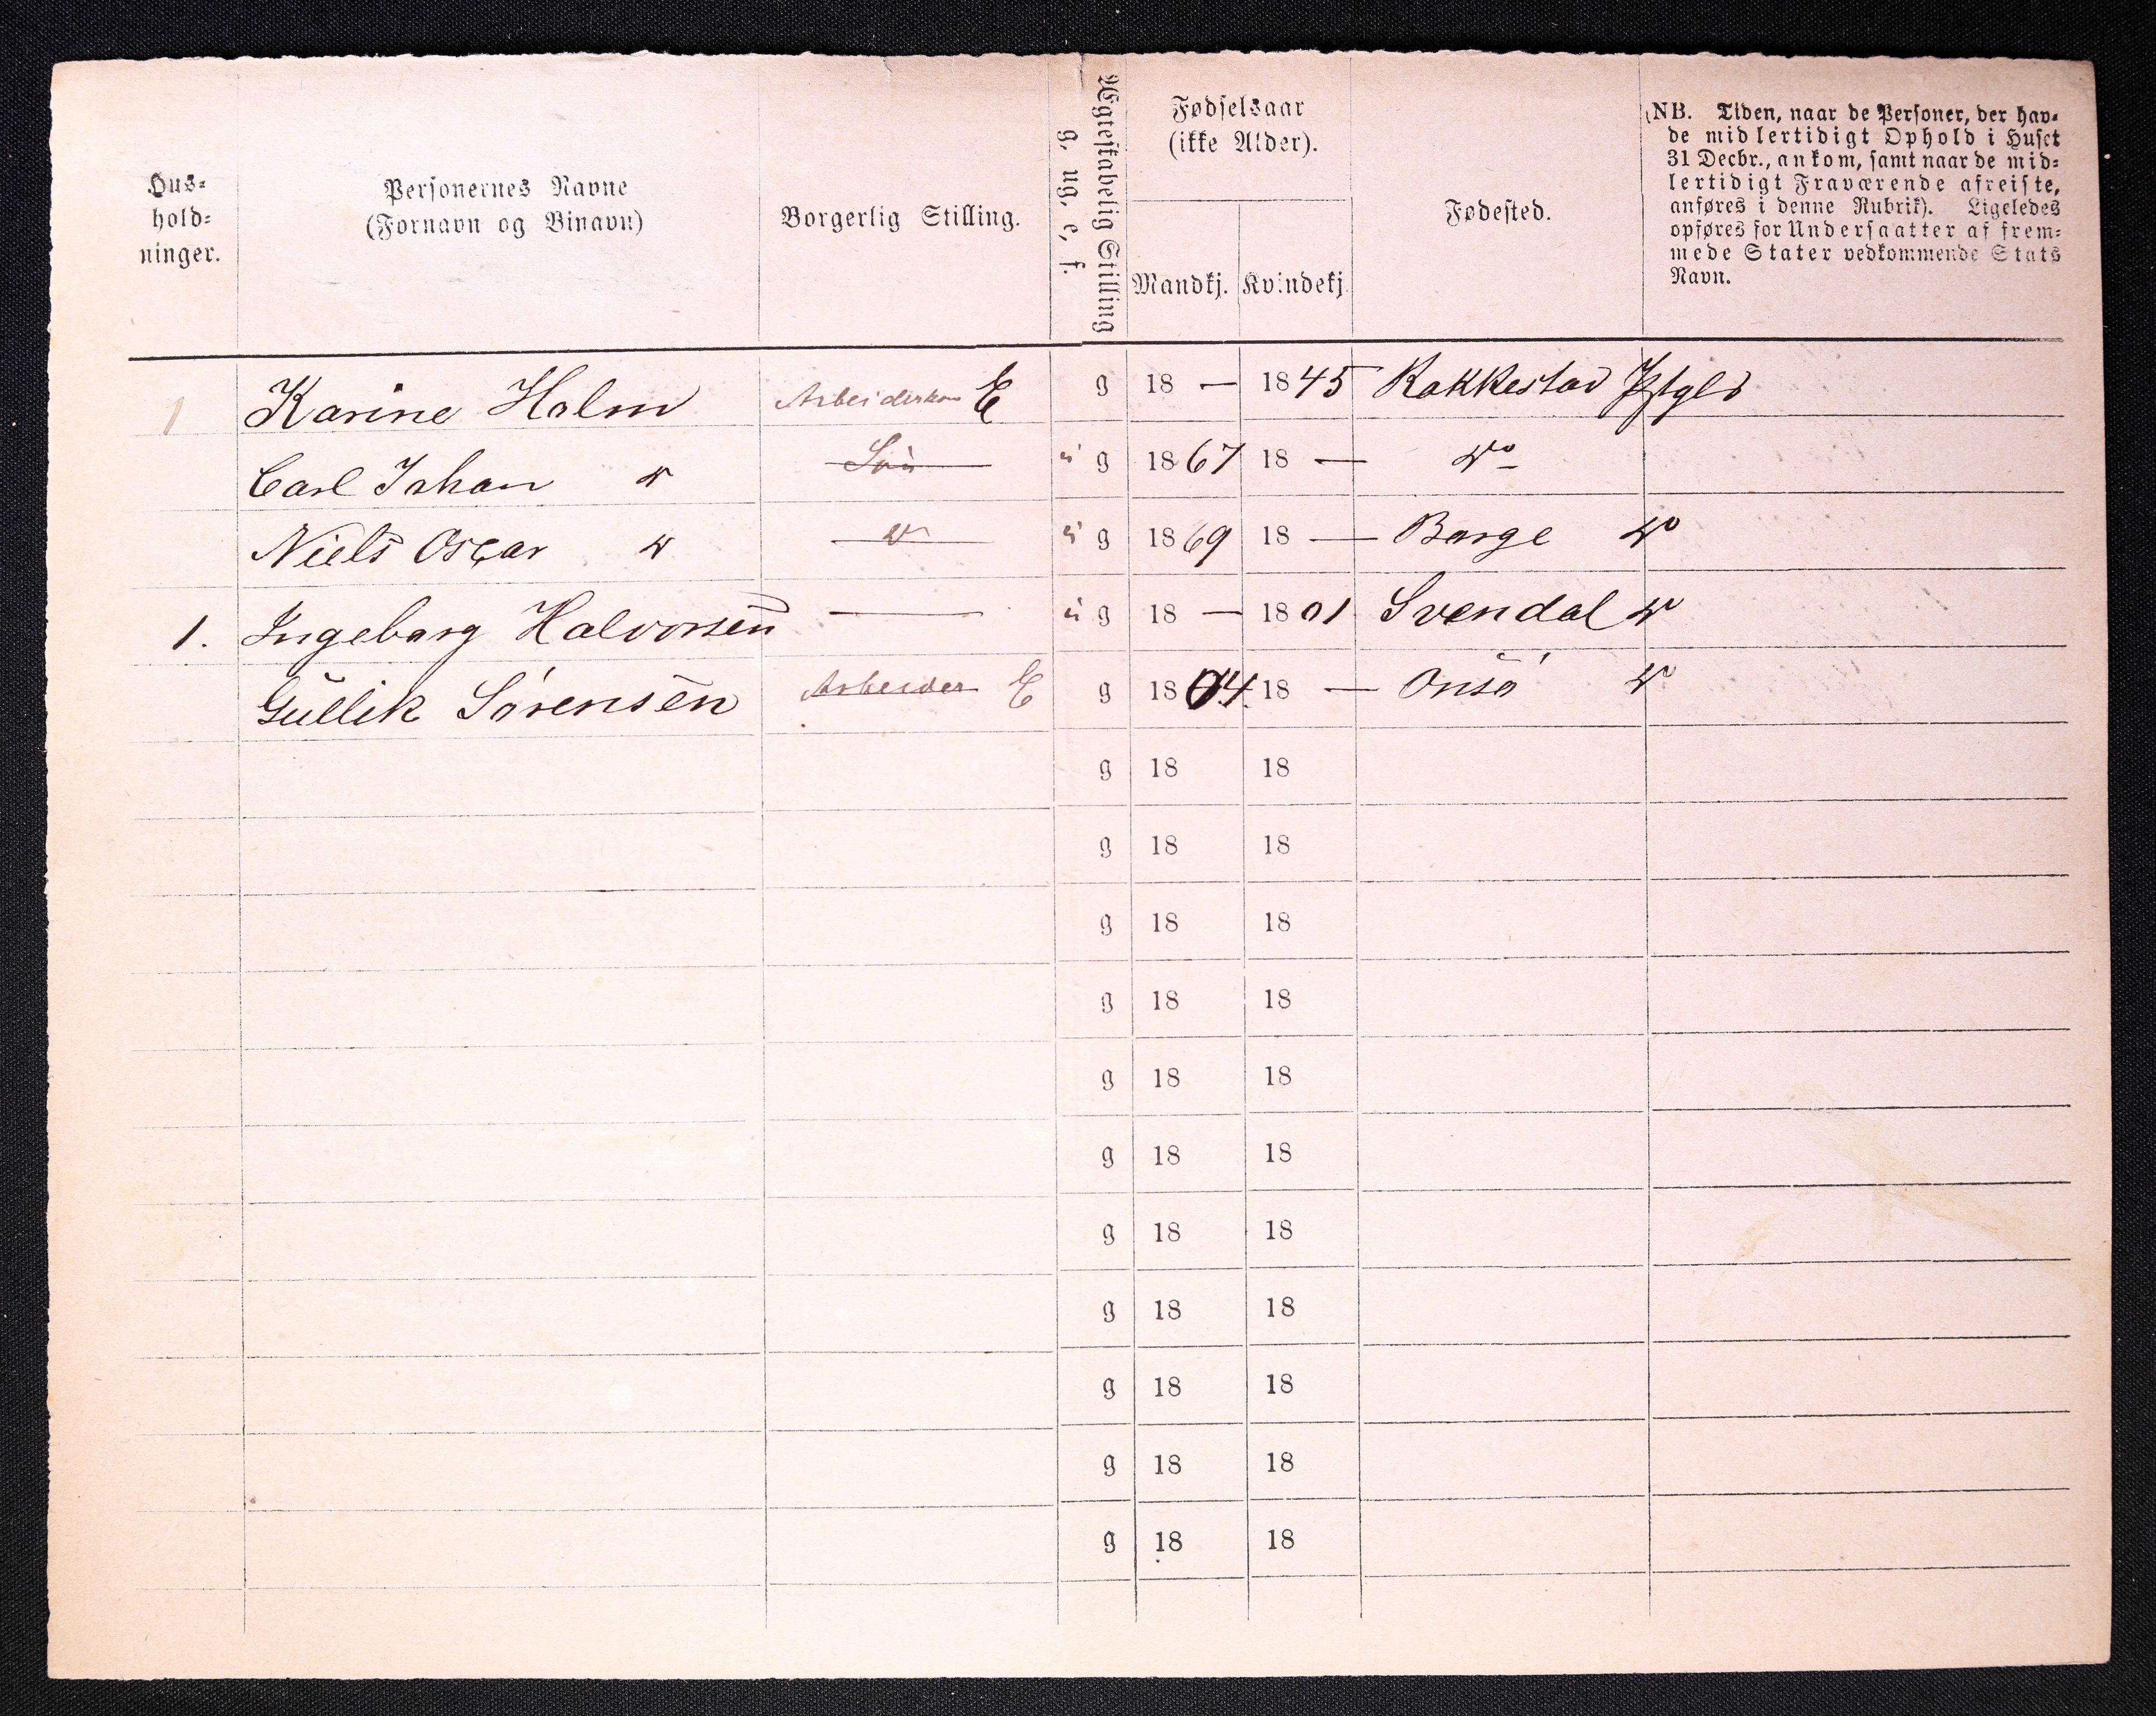 Hus-
hold-
ninger.
Personernes Navne
(Fornavn og Binavn)
Borgerlig Stilling.
Ægteskabelig Stilling
g, ug, e, f.
Fødselsaar
(ikke Alder).
Mandkj. Kvindekj.
Fødested.
(NB. Tiden, naar de Personer, der hav-
de midlertidigt Ophold i Huset
31 Decbr., ankom, samt naar de mid-
lertidigt Fraværende afreiste,
anføres i denne Rubrik). Ligeledes
opføres for Undersaatter af frem-
mede Stater vedkommende Stats
Navn.
1 Karine Holm Arbeiderkone E g 18 — 1845 Rakkestad Pstgld
Carl Johan do Søn u g 1867 18 — do
Niels Oscar do do u g 1869 18 — Borge do
1. Ingeborg Halvorsen — u g 18 — 1801 Svendal do
Gullik Sørensen Arbeider E g 1804. 18 — Onsø do
g 18 18
g 18 18
g 18 18
g 18 18
g 18 18
g 18 18
g 18 18
g 18 18
g 18 18
g 18 18
g 18 18